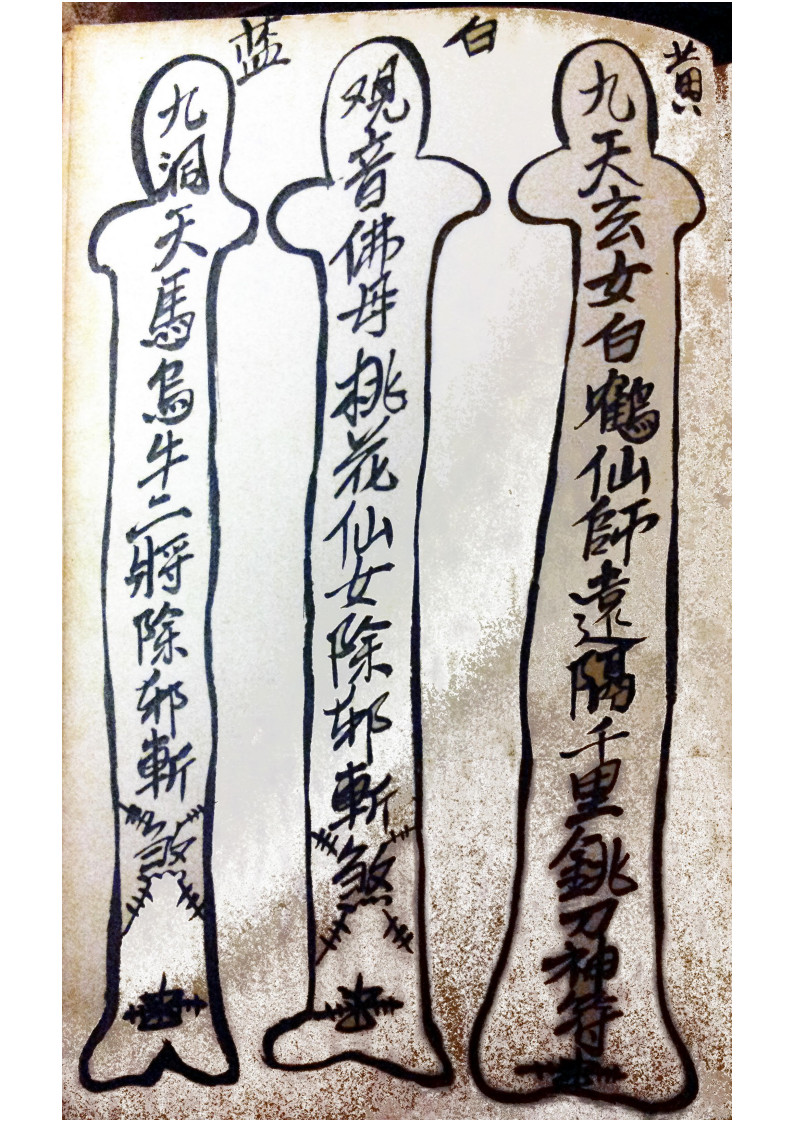 黄
九天玄女白鶴仙師遠隔千里銚刀神符
白
观音佛母挑花仙女除邪斬煞
蓝
九洞天馬烏牛二將除邪斬煞